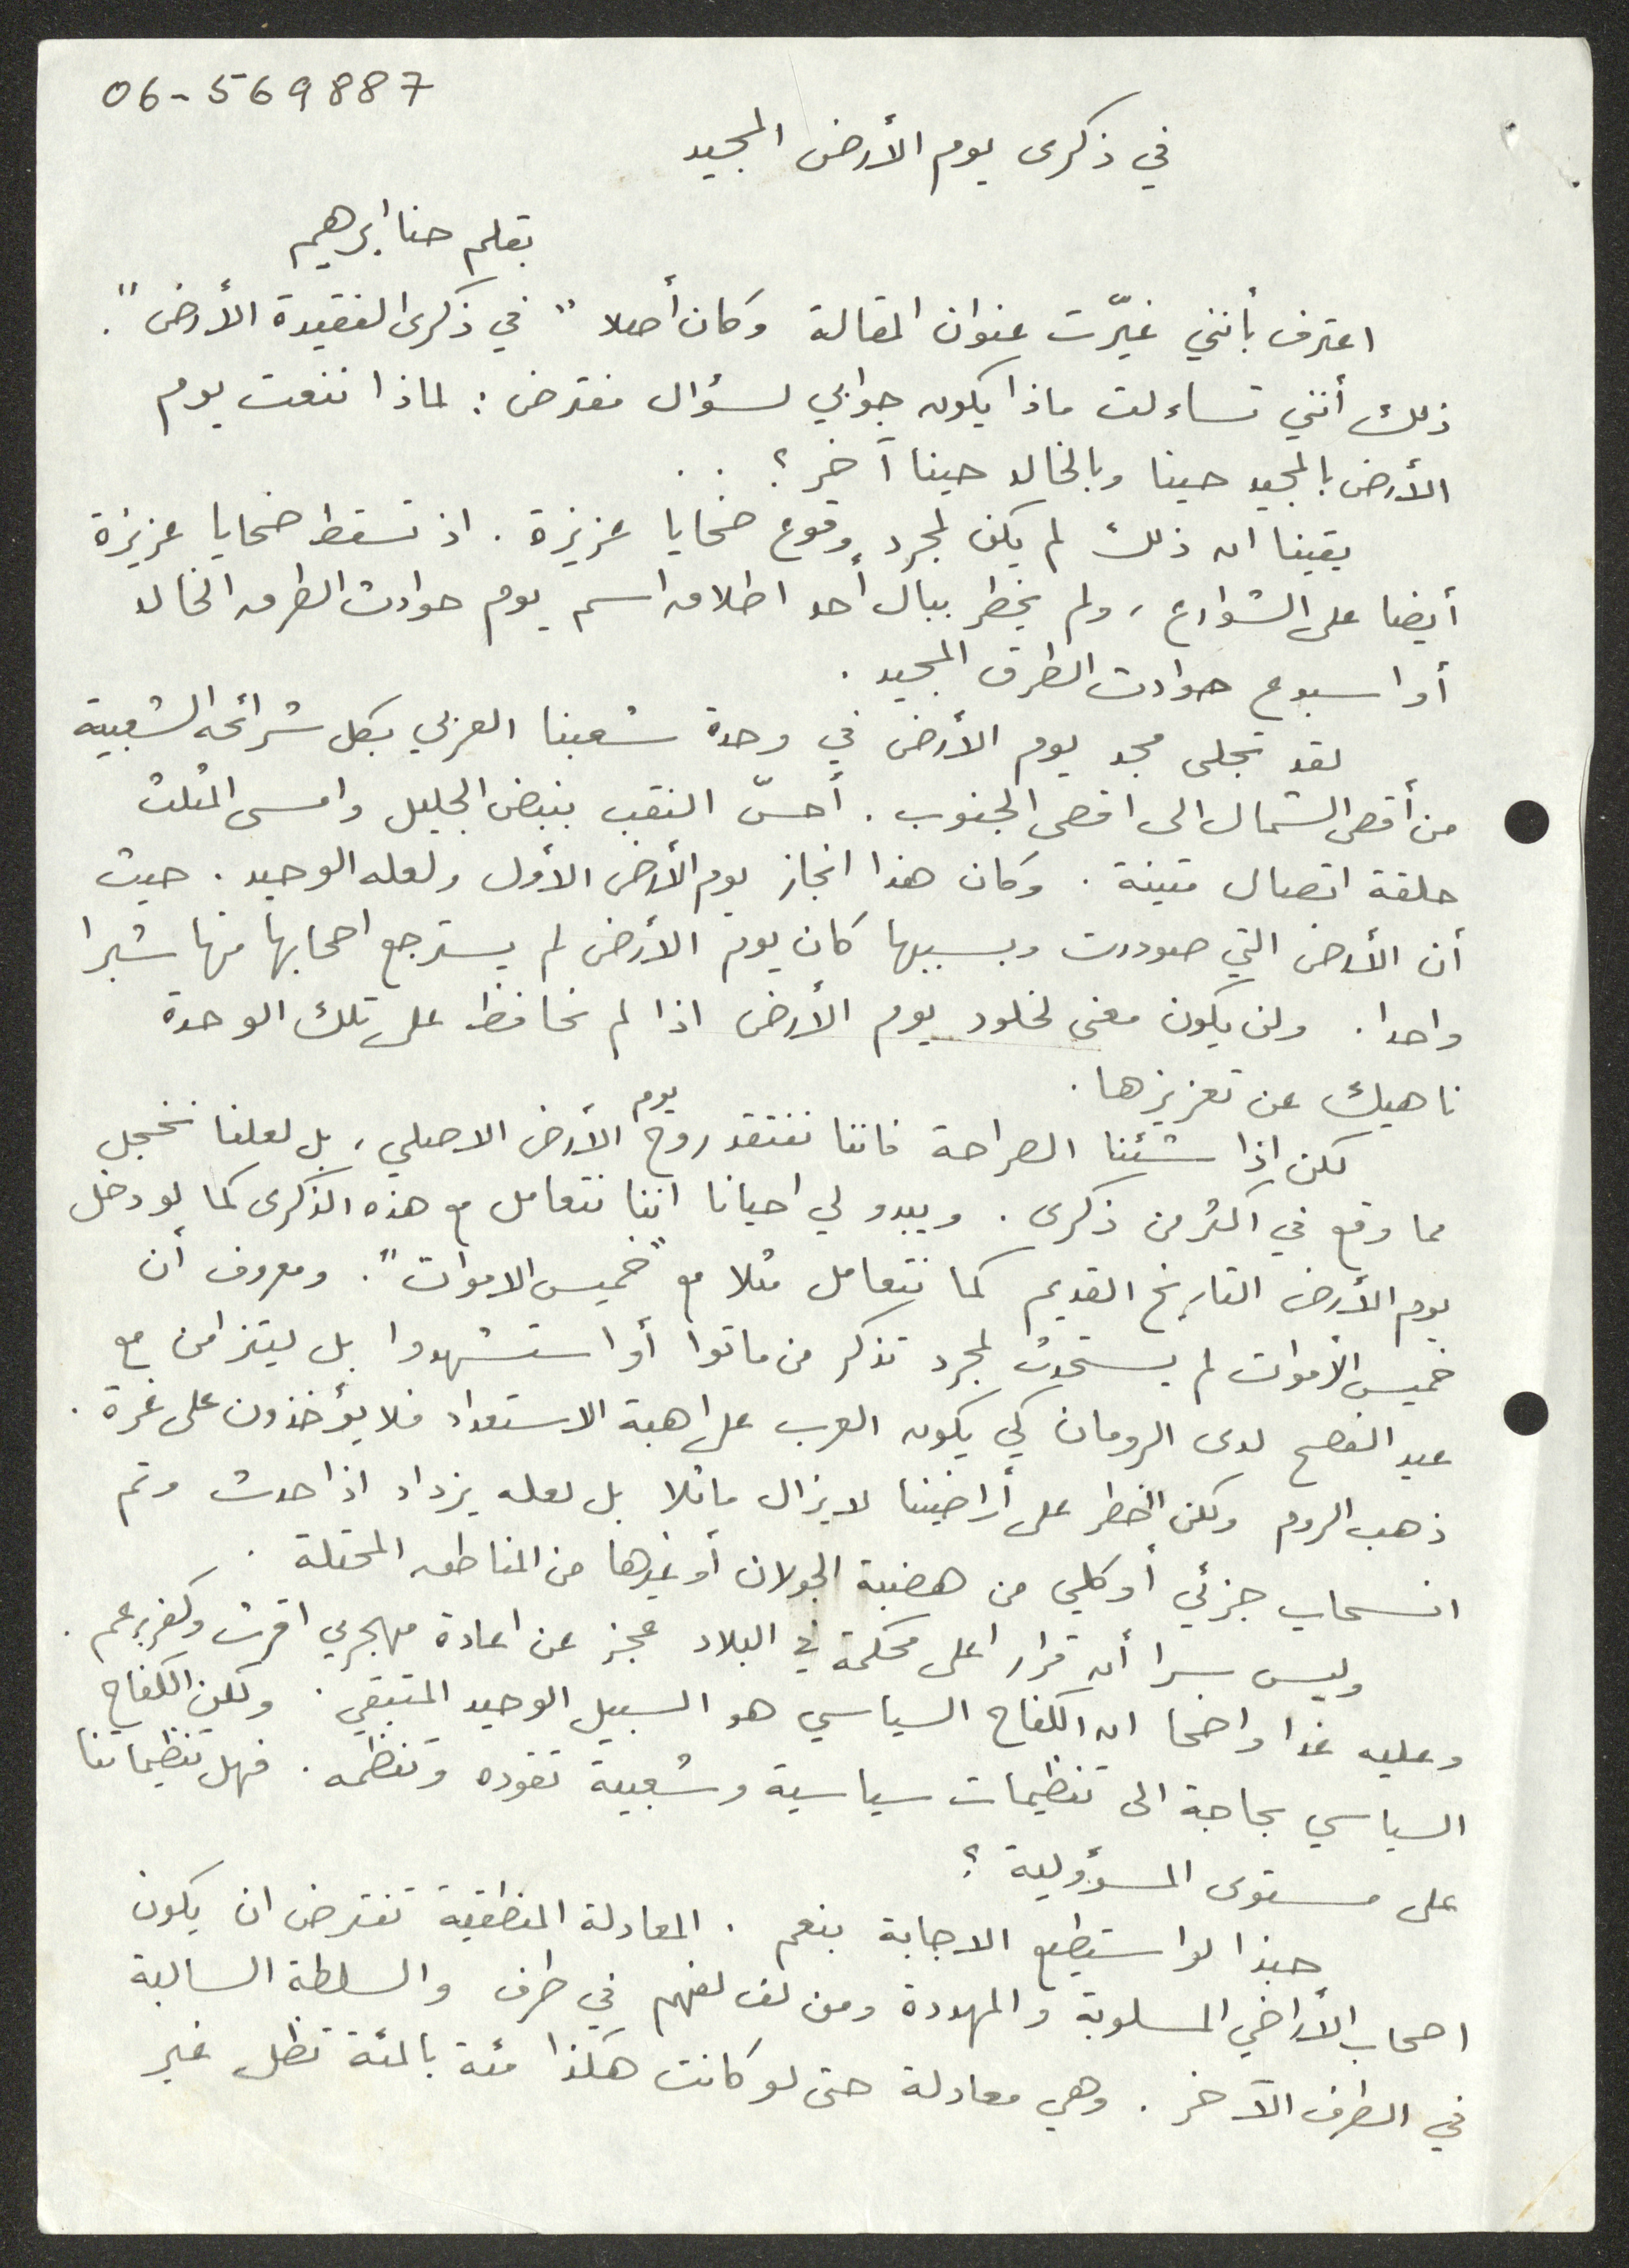 06-569887
في ذكرى يوم الأرض المجيد
بقلم حنا ابرهيم
اعترف بأنني غيّرت عنوان المقالة وكان أصلا "في ذكرى الفقيدة الأرض".
ذلك أنني تساءلت ماذا يكون جوابي لسؤال مفترض: لماذا ننعت يوم
الأرض بالمجيد حينا وبالخالد حينا آخر؟ . .
يقينا ان ذلك لم يكن لمجرد وقوع ضحايا عزيزة. اذ تسقط ضحايا عزيزة
أيضا على الشوارع، ولم يخطر ببال أحد اطلاق اسم يوم حوادث الطرق الخالد
أو اسبوع حوادث الطرق المجيد.
لقد تجلى مجد يوم الأرض في وحدة شعبنا العربي بكل شرائحه الشعبية
من أقصى الشمال الى اقصى الجنوب. أحسّ النقب بنبض الجليل وامسى المثلث
حلقة اتصال متينة. وكان هذا انجاز يوم الأرض الأول ولعله الوحيد. حيث
أن الأرض التي صودرت وبسببها كان يوم الأرض لم يسترجع اصحابها منها شبرا
واحدا. ولن يكون معنى لخلود يوم الأرض اذا لم نحافظ على تلك الوحدة
ناهيك عن تعزيزها.
لكن إذا شئنا الصراحة فاننا نفتقد روح يوم الأرض الاصلي، بل لعلنا نخجل
مما وقع في اكثر من ذكرى. ويبدو لي احيانا اننا نتعامل مع هذه الذكرى كما لو دخل
يوم الأرض التاريخ القديم كما نتعامل مثلا مع "خميس الاموات". ومعروف أن
خميس الأموات لم يستحدث لمجرد تذكر من ماتوا أو استشهدوا بل ليتزامن مع
عيد الفصح لدى الرومان كي يكون العرب على اهبة الاستعداد فلا يؤخذون على غرة.
ذهب الروم ولكن الخطر على أراضينا لا يزال ماثلا بل لعله يزداد اذا حدث وتم
انسحاب جزئي أو كلي من هضبة الجولان أو غيرها من المناطق المحتلة.
وليس سرا أن قرار اعلى محكمة في البلاد عجز عن اعادة مهجري اقرث وكفر برعم.
وعليه غدا واضحا ان الكفاح السياسي هو السبيل الوحيد المتبقي. ولكن الكفاح
السياسي بحاجة الى تنظيمات سياسية وشعبية تقوده وتنظمه. فهل تنظيماتنا
على مستوى المسؤولية؟
حبذا لو استطيع الاجابة بنعم. المعادلة المنطقية تفترض ان يكون
اصحاب الأراضي المسلوبة والمهددة ومن لف لفهم في طرف والسلطة السالبة
في الطرف الآخر. وهي معادلة حتى لو كانت هكذا مئة بالمئة تظل غير